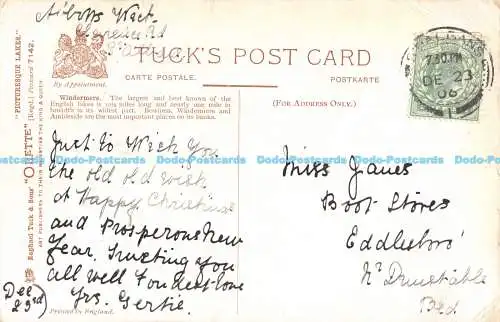 TUCK'S POST CARD
CARTE POSTALE.
POSTKARTE
By Appointment.
(FOR ADDRESS ONLY.)
Windermere. The largest and best known of the
English lakes is 10½ miles long and nearly one mile in
breadth in its widest part. Bowness, Windermere and
Ambleside are the most important places on its banks.
"PICTURESQUE LAKES."
Raphael Tuck & Sons' "OILETTE" (Regd.) Postcard 7142.
ART PUBLISHERS TO THEIR MAJESTIES THE KING & QUEEN.
7.30 PM
DE 23
06
Just to Wish you
the old old wish
A Happy Christmas
and Prosperous New
Year. Trusting you
all well Fondest love
Yrs. Gertie.
Dec
23rd
Printed in England.
Miss Janes
Boot Stores
Eddlesboro'
Nr Dunstable
Bed
Dodo-Postcards Dodo-Postcards Dodo-Postcards Dodo-Postcards Dodo-Postcards Dodo-Postcards